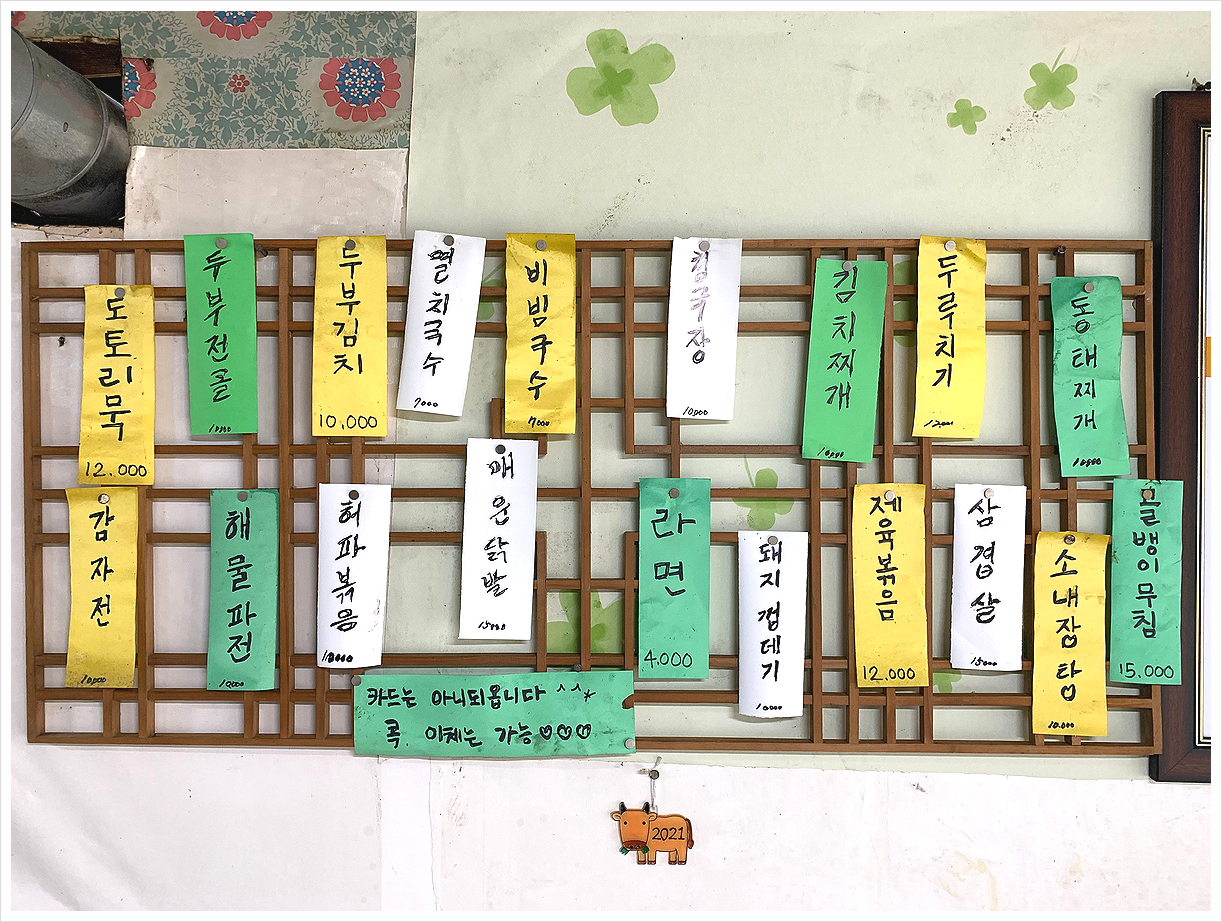 도토리묵
12.000
두부전골
10000
두부김치
10,000
멸치국수
7000
비빔국수
7000
청국장
10,000
김치찌개
10,000
두루치기
12,000
동태찌개
10000
감자전
10,000
해물파전
10,000
허파볶음
10,000
매운닭발
15000
라면
4.000
돼지껍데기
10000
제육볶음
12.000
삼겹살
15000
소내장탕
10.000
골뱅이무침
15.000
카드는 아니되옵니다 ^^*
콕. 이체는 가능♡♡♡
2021